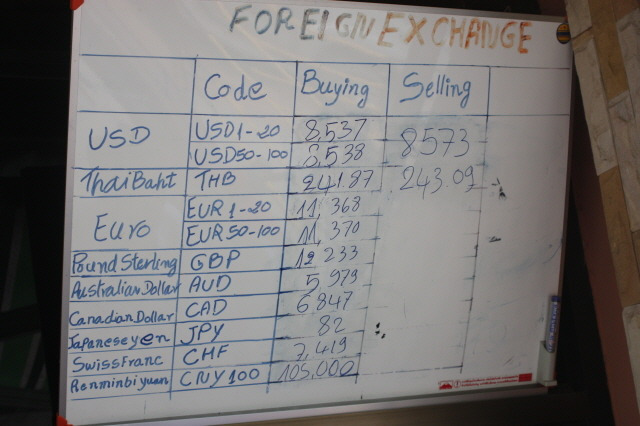 FOREIGN EXCHANGE
Code Buying Selling
USD USD1-20 8,537 8573
USD50-100 8,538
ThaiBaht THB 241.87 243.09
Euro EUR 1-20 11,368
EUR 50-100 11,370
Pound Sterling GBP 12 233
Australian Dollar AUD 5,979
Canadian Dollar CAD 6,847
Japanese yen JPY 82
Swiss Franc CHF 7,419
Renminbi yuan CNY100 105,000